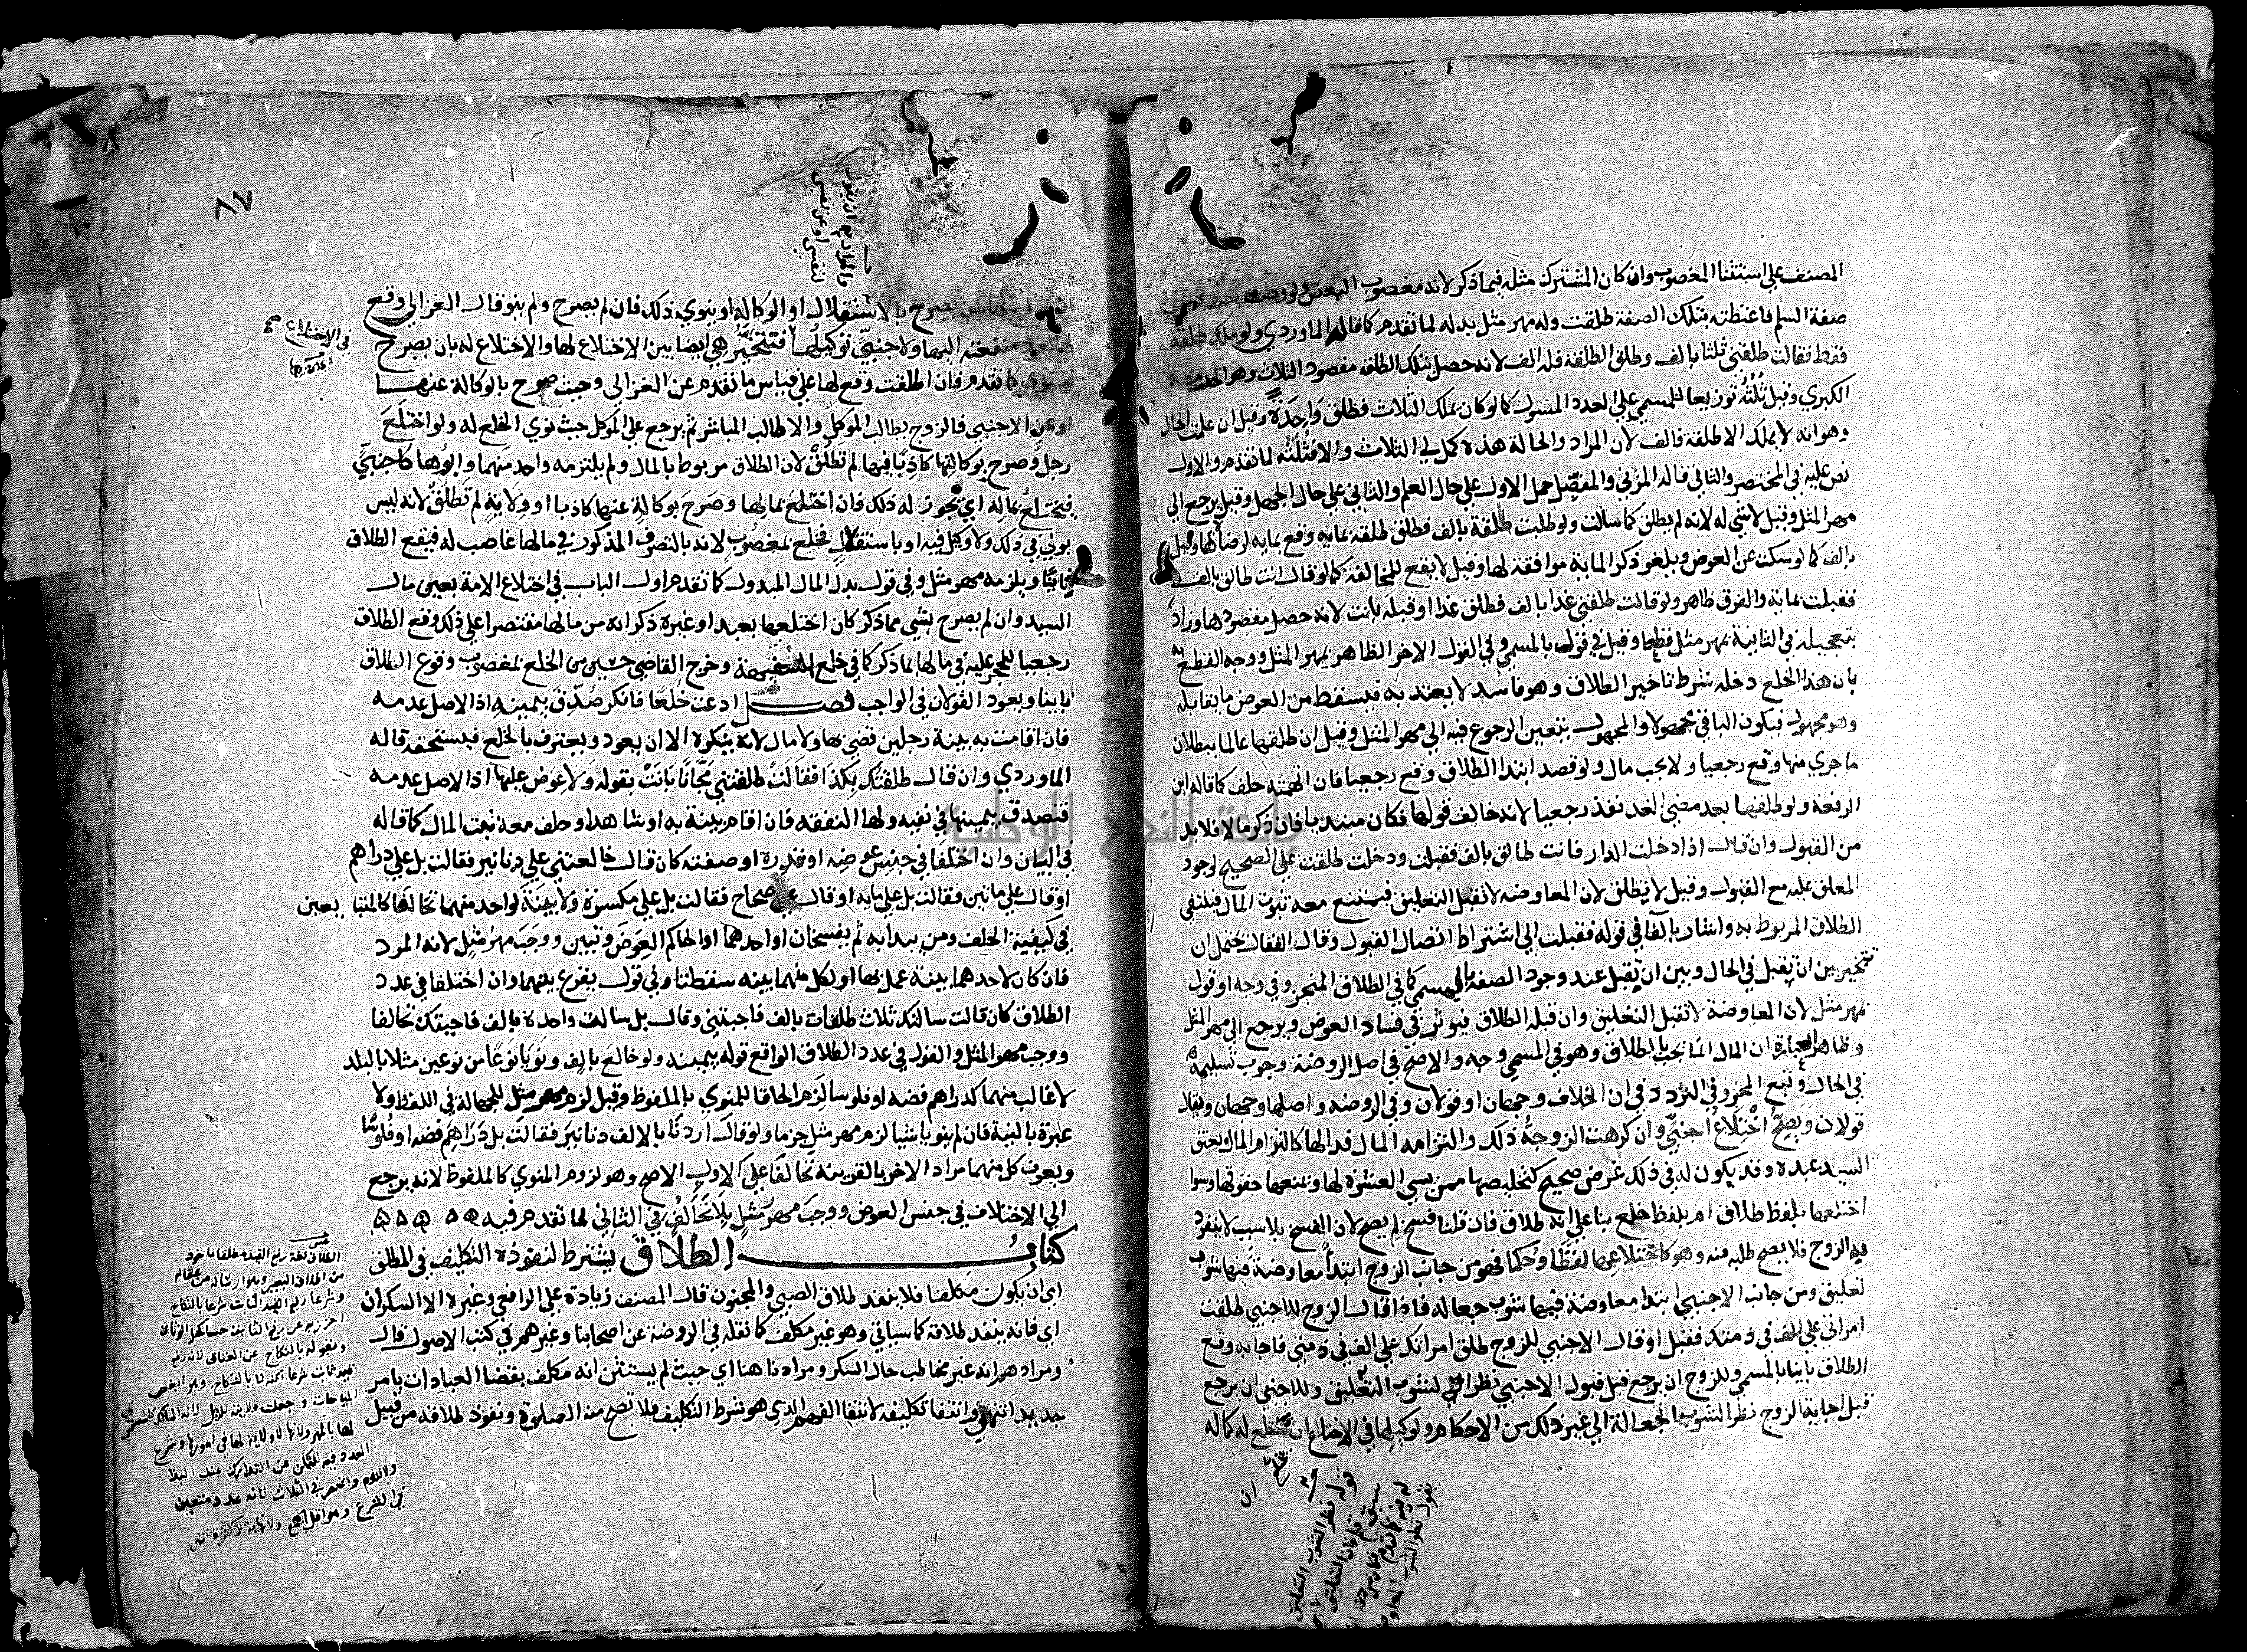 المصنف علي استثنا المغصوب وان كان المشترك مثله فيما ذكر لانه مغصوب البعض ولو وصفه
صفة السلم فاعطته بتلك الصفة طلقت وله مهر مثل بدله لما تقدم كما قاله الماوردي ولو ملك طلقة
فقط فقالت طلقني ثلثا بالف وطلق الطلقة فله الف لانه حصل بتلك الطلقة مقصود الثلاث وهو الحرمة
الكبري وقيل ثلثه توزيعا للمسمي علي العدد المسئول كما لو كان يملك الثلاث فطلق واحدة وقيل ان علمت الحال
وهو انه لا يملك الا طلقة فالف لان المراد والحالة هذه كمل لي الثلاث والا فثلثه لما تقدم والاول
نص عليه في المختصر والثاني قاله المزني والمفصل حمل الاول علي حال العلم والثاني علي حال الجهل وقيل يرجع الي
مهر المثل وقيل لا شي له لانه لم يطلق كما سالت ولو طلبت طلقة بالف فطلق طلقة بمايه وقع بمايه لرضاه بها وقيل
بالف كما لو سكت عن العوض ويلغو ذكر الماية موافقة لها وقيل لا يقع للمخالفة كما لو قال انت طالق بالف
فقبلت بمايه والفرق ظاهر ولو قالت طلقني غدا بالف فطلق غدا او قبله بانت لانه حصل مقصودها وزاد
بتعجيله في الثانية بمهر مثل قطعا وقيل في قول بالمسمي وفي القول الاخر الظاهر بمهر المثل ووجه القطع به
بان هذا الخلع دخله شرط تاخير الطلاق وهو فاسد لا يعتد به فيسقط من العوض ما يقابله
وهو مجهول فيكون الباقي مجهولا والمجهول يتعين الرجوع فيه الي مهر المثل وقيل ان طلقها عالما ببطلان
ما جري منها وقع رجعيا ولا يجب مال ولو قصد ابتدا الطلاق وقع رجعيا فان اتهمته حلف كما قاله ابن
الرفعة ولو طلقها بعد مضي الغد نفذ رجعيا لانه خالف قولها فكان مبتدبا فان ذكر مالا فلا بد
من القبول وان قال اذا دخلت الدار فانت طالق بالف فقبلت ودخلت طلقت علي الصحيح لوجود
المعلق عليه مع القبول وقيل لا يطلق لان المعاوضه لا تقبل التعليق فيمتنع معه ثبوت المال فينتفي
الطلاق المربوط به واشار بالفا في قوله فقبلت الي اشتراط اتصال القبول وقال القفال يحتمل ان
تتخير بين ان تقبل في الحال وبين ان تقبل عند وجود الصفة بالمسمي كما في الطلاق المنجز وفي وجه او قول
بمهر مثل لان المعاوضة لا تقبل التعليق وان قبله الطلاق فيوثر في فساد العوض ويرجع الي مهر المثل
وظاهر العبارة ان المال انما يجب بالطلاق وهو في المسمي وجه والاصح في اصل الروضة وجوب تسليمه
في الحال وتبع المحرر في التردد في ان الخلاف وجهان او قولان وفي الروضة واصلها وجهان ويقال
قولان ويصح اختلاع اجنبي وان كرهت الزوجة ذلك والتزامه المال فدالها كالتزام المال بعتق
السيد عبده وقد يكون له في ذلك غرض صحيح كتخليصها ممن يسي العشرة لها ويمنعها حقوقها وسوا
اختلعها بلفظ طلاق ام بلفظ خلع بنا علي انه طلاق فان قلنا فسخ لم يصح لان الفسخ بلا سبب لا ينفرد
به الزوج فلا يصح طلبه منه وهو كاختلاعها لفظا وحكما فهو من جانب الزوج ابتدا معاوضة فيها شوب
تعليق ومن جانب الاجنبي ابتدا معاوضة فيها شوب جعاله فاذا قال الزوج للاجنبي طلقت
امراتي علي الف في ذمتك فقبل او قال الاجنبي للزوج طلق امراتك علي الف في ذمتي فاجابه وقع
الطلاق باينا بالمسمي وللزوج ان يرجع قبل قبول الاجنبي نظرا لشوب التعليق وللاجنبي ان يرجع
قبل اجابة الزوج نظرا لشوب الجعالة الي غير ذلك من الاحكام ولوكيلها في الاختلاع ان يختلع له كما له
٨٧
يصرح بالاستقلال او الوكالة او ينوي ذلك فان لم يصرح ولم ينو قال الغزالي وقع
منفعته اليها ولاجنبي توكيلها فتتخير هي ايضا بين الاختلاع لها والاختلاع له بان يصرح
كما تقدم فان اطلقت وقع لها علي قياس ما تقدم عن الغزالي وحيث صرح بالوكالة عنها
او عن الاجنبي فالزوج يطالب الموكل والا طالب المباشر ثم يرجع علي الموكل حيث نوي الخلع له ولو اختلع
رجل وصرح بوكالتها كاذبا فيها لم تطلق لان الطلاق مربوط بالمال ولم يلتزمه واحد منهما وابوها كاجنبي
فيختلع بماله اي يجوز له ذلك فان اختلع بمالها وصرح بوكالة عنها كاذبا او ولاية لم تطلق لانه ليس
بولي في ذلك ولا وكيل فيه او باستقلال فخلع بمغصوب لانه بالتصرف المذكور في مالها غاصب له فيقع الطلاق
باينا ويلزمه مهر مثل وفي قول بدل المال المبذول كما تقدم اول الباب في اختلاع الامة بعين مال
السيد وان لم يصرح بشي مما ذكر كان اختلعها بعبد او غيره ذكر انه من مالها مقتصرا علي ذلك وقع الطلاق
رجعيا للحجر عليه في مالها بما ذكر كما في خلع السفيهة وخرج القاضي حسين من الخلع بمغصوب وقوع الطلاق
باينا ويعود القولان في الواجب فصل ادعت خلعا فانكر صدق بيمينه اذ الاصل عدمه
فان اقامت به بينة رجلين قضي بها ولا مال لانه ينكره الا ان يعود ويعترف بالخلع فيستحقه قاله
الماوردي وان قال طلقتك بكذا فقالت طلقتني مجانا بانت بقوله ولا عوض عليها اذ الاصل عدمه
فتصدق بيمينها في نفيه ولها النفقه فان اقام بينة به او شاهدا وحلف معه ثبت المال كما قاله
في البيان وان اختلفا في جنس عوضه او قدره او صفته كان قال خالعتني علي دنانير فقالت بل علي دراهم
او قال علي مايتين فقالت بل علي مايه او قال علي صحاح فقالت بل علي مكسرة ولا بينة لواحد منهما تحالفا كالمتبايعين
في كيفية الحلف ومن يبدا به ثم يفسخان او احدهما او الحاكم العوض وتبين ووجب مهر مثل لانه المرد
فان كان لاحدهما بينة عمل بها او لكل منهما بينه سقطتا وفي قول يقرع بينهما وان اختلفا في عدد
الطلاق كان قالت سالتك ثلاث طلقات بالف فاجبتني وقال بل سالت واحدة بالف فاجبتك تحالفا
ووجب مهر المثل والقول في عدد الطلاق الواقع قوله بيمينه ولو خالع بالف ونويا نوعا من نوعين مثلا بالبلد
لا غالب منهما كدراهم فضه او فلوس لزم الحاقا للمنوي بالملفوظ وقيل لزم مهر مثل للجهالة في اللفظ ولا
عبرة بالنية فان لم ينويا شيا لزم مهر مثل جزما ولو قال اردنا بالالف دنانير فقالت بل دراهم فضه او فلوسا
ويعرف كل منهما مراد الاخر بالقرينه تحالفا علي الاول الاصح وهو لزوم المنوي كالملفوظ لانه يرجع
الي الاختلاف في جنس العوض ووجب مهر مثل بلا تحالف في الثاني لما تقدم فيه
كتاب الطلاق يشترط لنفوذه التكليف في المطلق
اي ان يكون مكلفا فلا ينفذ طلاق الصبي والمجنون قال المصنف زيادة علي الرافعي وغيره الا السكران
اي فانه ينفذ طلاقه كما سياتي وهو غير مكلف كما نقله في الروضة عن اصحابنا وغيرهم في كتب الاصول قال
ومرادهم انه غير مخاطب حال السكر ومرادنا هنا اي حيث لم يستثن انه مكلف بقضا العبادات بامر
جديد انتهي وانتفا تكليفه لانتفا الفهم الذي هو شرط التكليف فلا تصح منه الصلوة ونفوذ طلاقه من قبيل